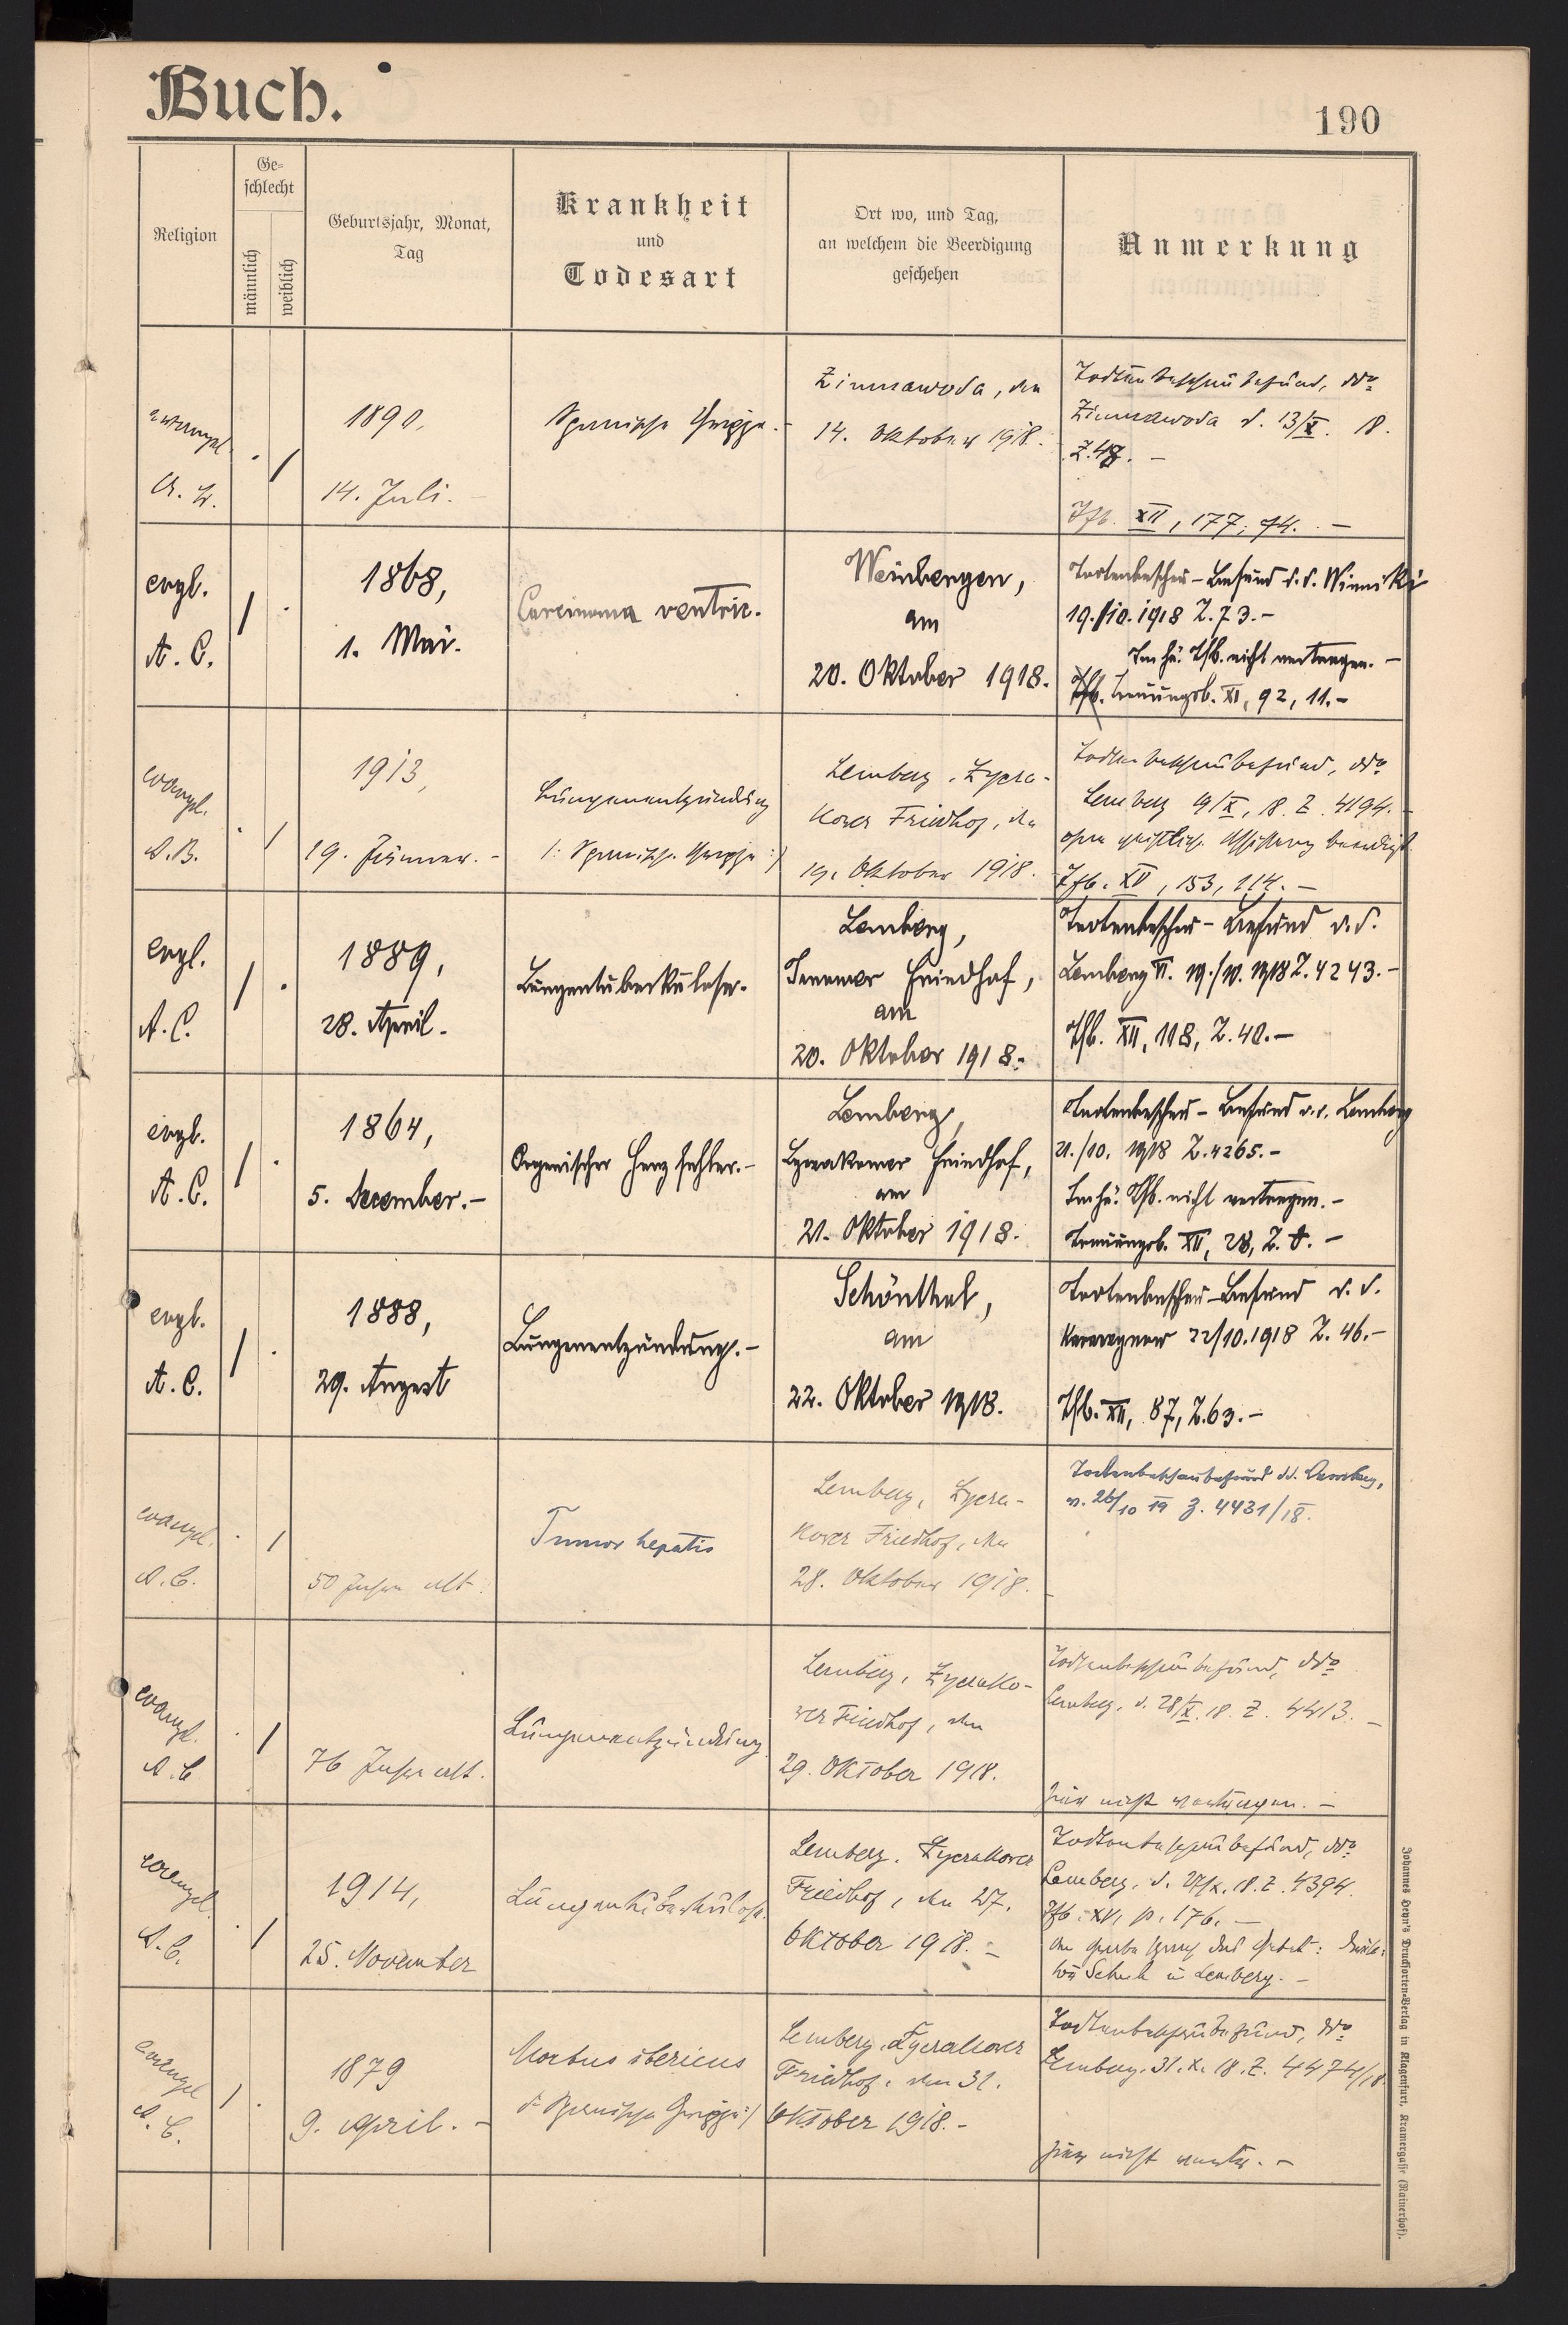 Buch.
190
Religion
Ge-
schlecht
männlich
weiblich
Geburtsjahr, Monat,
Tag
Krankheit
und
Todesart
Ort wo, und Tag,
an welchem die Beerdigung
geschehen
Anmerkung
evangel.
1890,
14. Juli. -
Spanische Grippe. -
Zimnawoda, den
14. Oktober 1918.
Todtenbeschaubefund, ddo
Zimnawoda d. 13/X. 18.
Z. 48. -
Tfb. XII, 177, 74. -
evgl.
A. C.
1868,
1. Mai.
Carcinoma ventric.
Weinbergen,
am
20. Oktober 1918.
Totenbeschau-Befund d. d. Winniki
19./10. 1918 Z. 73. -
Im hä. Tfb. nicht vertragen. -
Trauungsb. XI, 92, 11. -
evangel.
A. B.
1913,
19. Jänner. -
Lungenentzündung
/: Spanische Grippe :/
Lemberg, Lycza-
kower Friedhof, den
19. Oktober 1918.
Todtenbeschaubefund, ddo
Lemberg 19/X, 18. Z. 4194. -
ohne geistliche Assistenz beerdigt.
Tfb. XV, 153, 114. -
evgl.
A. C.
1889,
28. April.
Lungentuberkulose.
Lemberg,
Janower Friedhof,
am
20. Oktober 1918.
Totenbeschau-Befund d. d.
Lemberg VI. 19./10. 1918 Z. 4243. -
Tfb. XII, 118, Z. 40. -
evgl.
A. C.
1864,
5. December. -
Organischer Herzfehler. -
Lemberg,
Lyczakower Friedhof,
am
21. Oktober 1918.
Totenbeschau-Befund d. d. Lemberg
21./10. 1918 Z. 4265. -
Im hä. Tfb. nicht vertragen. -
Trauungsb. XII, 28, Z. 8. -
evgl.
A. C.
1888,
29. August
Lungenentzündung. -
Schönthal,
am
22. Oktober 1918.
Totenbeschau-Befund d. d.
22/10. 1918 Z. 46. -
Tfb. XII, 87, Z. 63. -
evangel.
A. C.
50 Jahre alt.
Tumor hepatis
Lemberg, Lycza-
kower Friedhof, den
28. Oktober 1918. -
Totenbeschaubefund dd. Lemberg,
v. 26/10 19 Z. 4431/18.
evangel.
A. C
76 Jahre alt.
Lungenentzündung
Lemberg, Lyczako-
wer Friedhof, den
29. Oktober 1918.
Todtenbeschaubefund, ddo
Lemberg, d. 28/X. 18. Z. 4413. -
hier nicht vertragen. -
evangel.
A. C.
1914,
25. November
Lungentuberkulose.
Lemberg. Lyczakower
Friedhof, den 27.
Oktober 1918. -
Todtenbeschaubefund, ddo
Lemberg, d. 27/X. 18. Z. 4394.
Tfb. XV, p. 176. -
Am Grabe sprach das Gebet:
Schick in Lemberg. -
evangel
A. C.
1879
9. April. -
Morbus ibericus
/: Spanische Grippe :/
Lemberg, Lyczakower
Friedhof, den 31.
Oktober 1918. -
Todtenbeschaubefund, ddo
Lemberg, 31. X. 18. Z. 4474/18.
hier nicht vertr. -
Johannes Heyn's Drucksorten-Verlag in Klagenfurt, Kramergasse (Rainerhof).